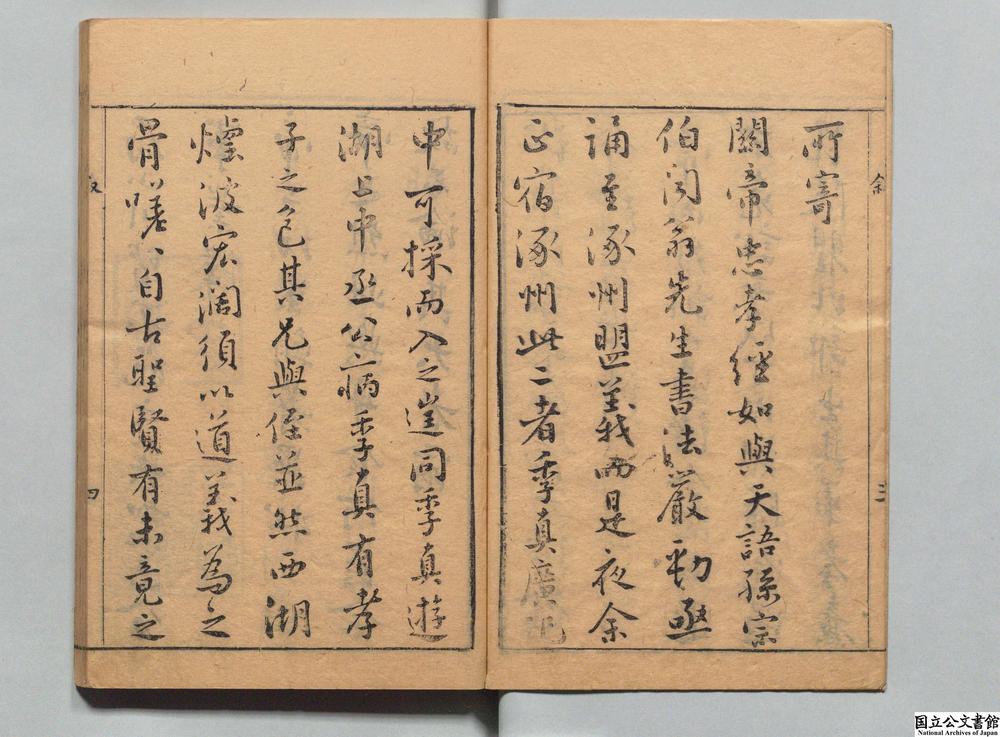 所寄
關帝忠孝經如與天語孫宗
伯閱翁先生書法嚴勁亟
誦至涿州盟義而是夜余
正宿涿州此二者季真廣記
中可採而入之豈同季真遊
湖上中丞公病季真有孝
子之色其兄與侄並然西湖
煙波宏濶須以道義為之
骨嗟〻自古聖賢有未竟之
叙
三
四
国立公文書館
National Archives of Japan